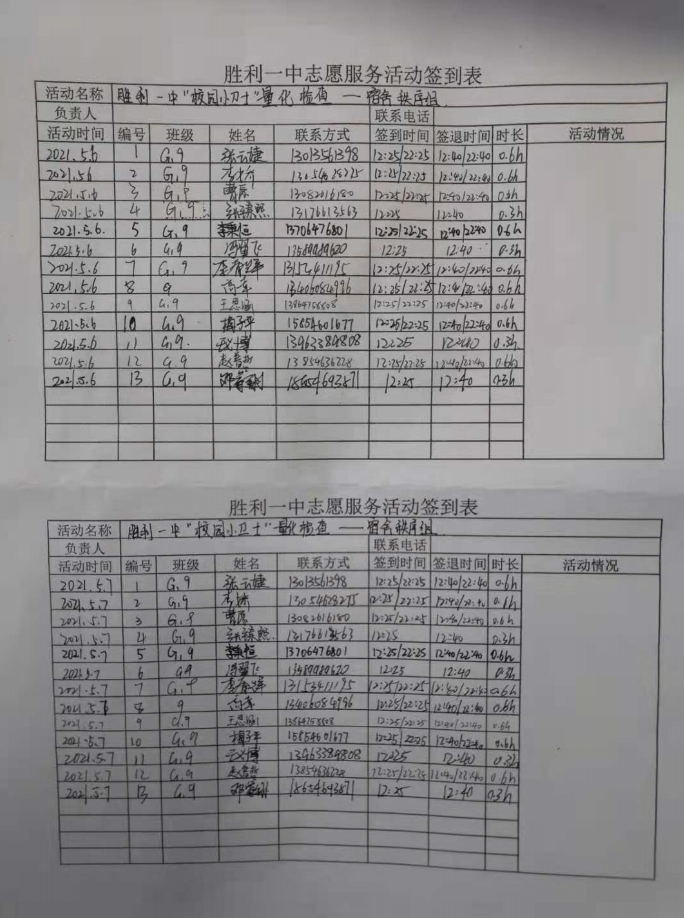 胜利一中志愿服务活动签到表
活动名称 胜利一中"校园小卫士"量化检查 ——宿舍秩序组
负责人 联系电话
活动时间 编号 班级 姓名 联系方式 签到时间 签退时间 时长 活动情况
2021.5.6 1 G.9 张云婕 12:25/22:25 12:40/22:40 0.6h
2021.5.6 2 G.9 12:25/22:25 12:40/22:40 0.6h
2021.5.6 3 G.9 曹原 13082616180 12:25/22:25 12:40/22:40 0.6h
2021.5.6 4 G.9 13176613563 12:25 12:40 0.3h
2021.5.6. 5 G.9 13706476801 12:25/22:25 12:40/22:40 0.6h
6 G.9 冯翼飞 12:25 12:40 0.3h
2021.5.6 7 G.9 12:25/22:25 12:40/22:40 0.6h
2021.5.6 8 9 13406084996 12:25/22:25 12:40/22:40 0.6h
2021.5.6 9 G.9 王思涵 12:25/22:25 12:40/22:40 0.6h
2021.5.6 10 G.9 15854601677 12:25/22:25 12:40/22:40 0.6h
2021.5.6 11 G.9 13963389808 12:25 12:40 0.3h
2021.5.6 12 G.9 12:25/22:25 12:40/22:40 0.6h
2021.5.6 13 G.9 12:25 12:40 0.3h
胜利一中志愿服务活动签到表
活动名称 胜利一中"校园小卫士"量化检查 ——宿舍秩序组
负责人 联系电话
活动时间 编号 班级 姓名 联系方式 签到时间 签退时间 时长 活动情况
2021.5.7 1 G.9 张云婕 12:25/22:25 12:40/22:40 0.6h
2021.5.7 2 G.9 12:25/22:25 12:40/22:40 0.6h
2021.5.7 3 G.9 曹原 13082616180 12:25/22:25 12:40/22:40 0.6h
2021.5.7 4 G.9 12:25 12:40 0.3h
2021.5.7 5 G.9 13706476801 12:25/22:25 12:40/22:40 0.6h
6 G9 冯翼飞 12:25 12:40 0.3h
2021.5.7 7 G.9 12:25/22:25 12:40/22:40 0.6h
8 9 13406084996 12:25/22:25 12:40/22:40 0.6h
2021.5.7 9 G.9 王思涵 12:25/22:25 12:40/22:40 0.6h
2021.5.7 10 G.9 15854601677 12:25/22:25 12:40/22:40 0.6h
2021.5.7 11 G.9 13963389808 12:25 12:40 0.3h
2021.5.7 12 G.9 12:25/22:25 12:40/22:40 0.6h
2021.5.7 13 G.9 12:25 12:40 0.3h